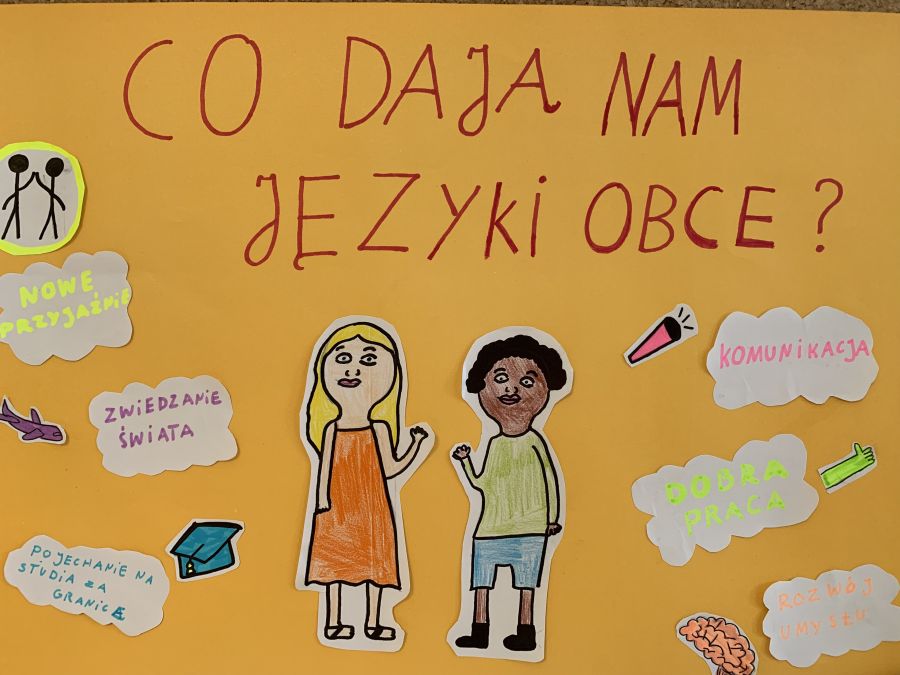 CO DAJĄ NAM
JĘZYKI OBCE?
NOWE
PRZYJAŹNIE
ZWIEDZANIE
ŚWIATA
POJECHANIE NA
STUDIA ZA
GRANICĘ
KOMUNIKACJA
DOBRA
PRACA
ROZWÓJ
UMYSŁU